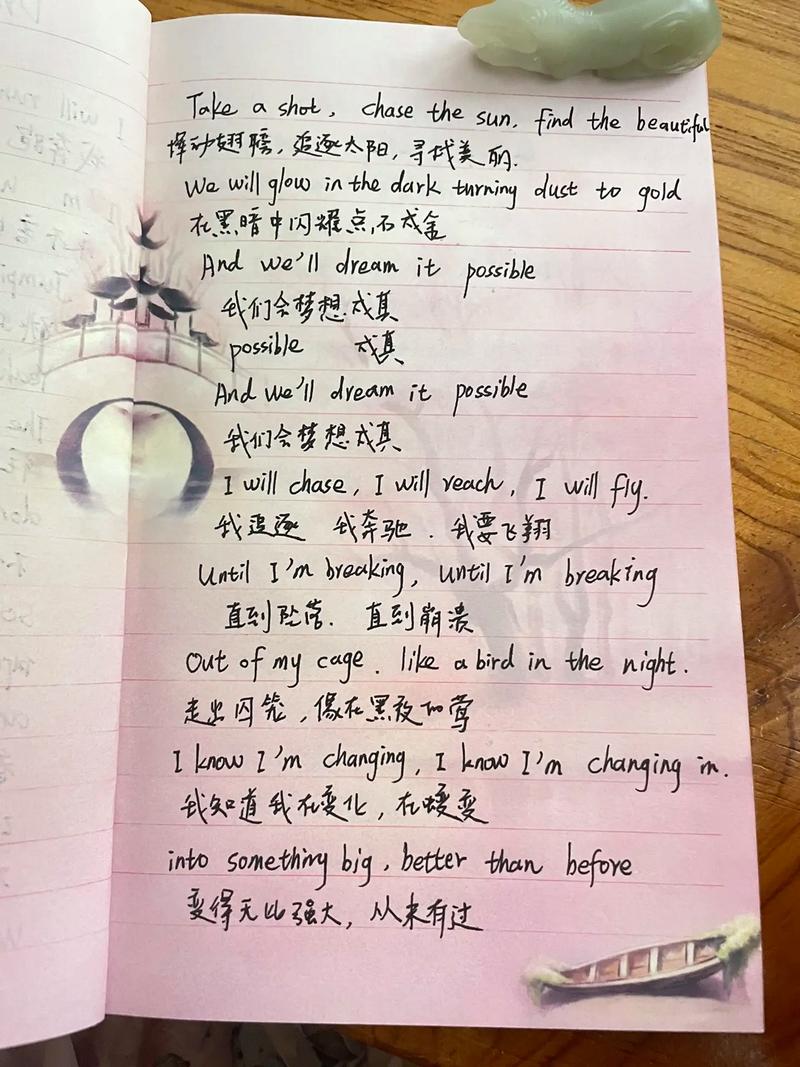 Take a shot, chase the sun, find the beautiful
挥动翅膀，追逐太阳，寻找美丽.
We will glow in the dark turning dust to gold
在黑暗中闪耀点石成金
And we'll dream it possible
我们会梦想成真
possible 成真
And we'll dream it possible
我们会梦想成真
I will chase, I will reach, I will fly.
我追逐 我奔驰. 我要飞翔
Until I'm breaking, until I'm breaking
直到坠落. 直到崩溃
Out of my cage. like a bird in the night.
走出囚笼，像在黑夜的莺
I know I'm changing, I know I'm changing in.
我知道我在变化，在蝬变
into something big, better than before
变得无比强大，从未有过